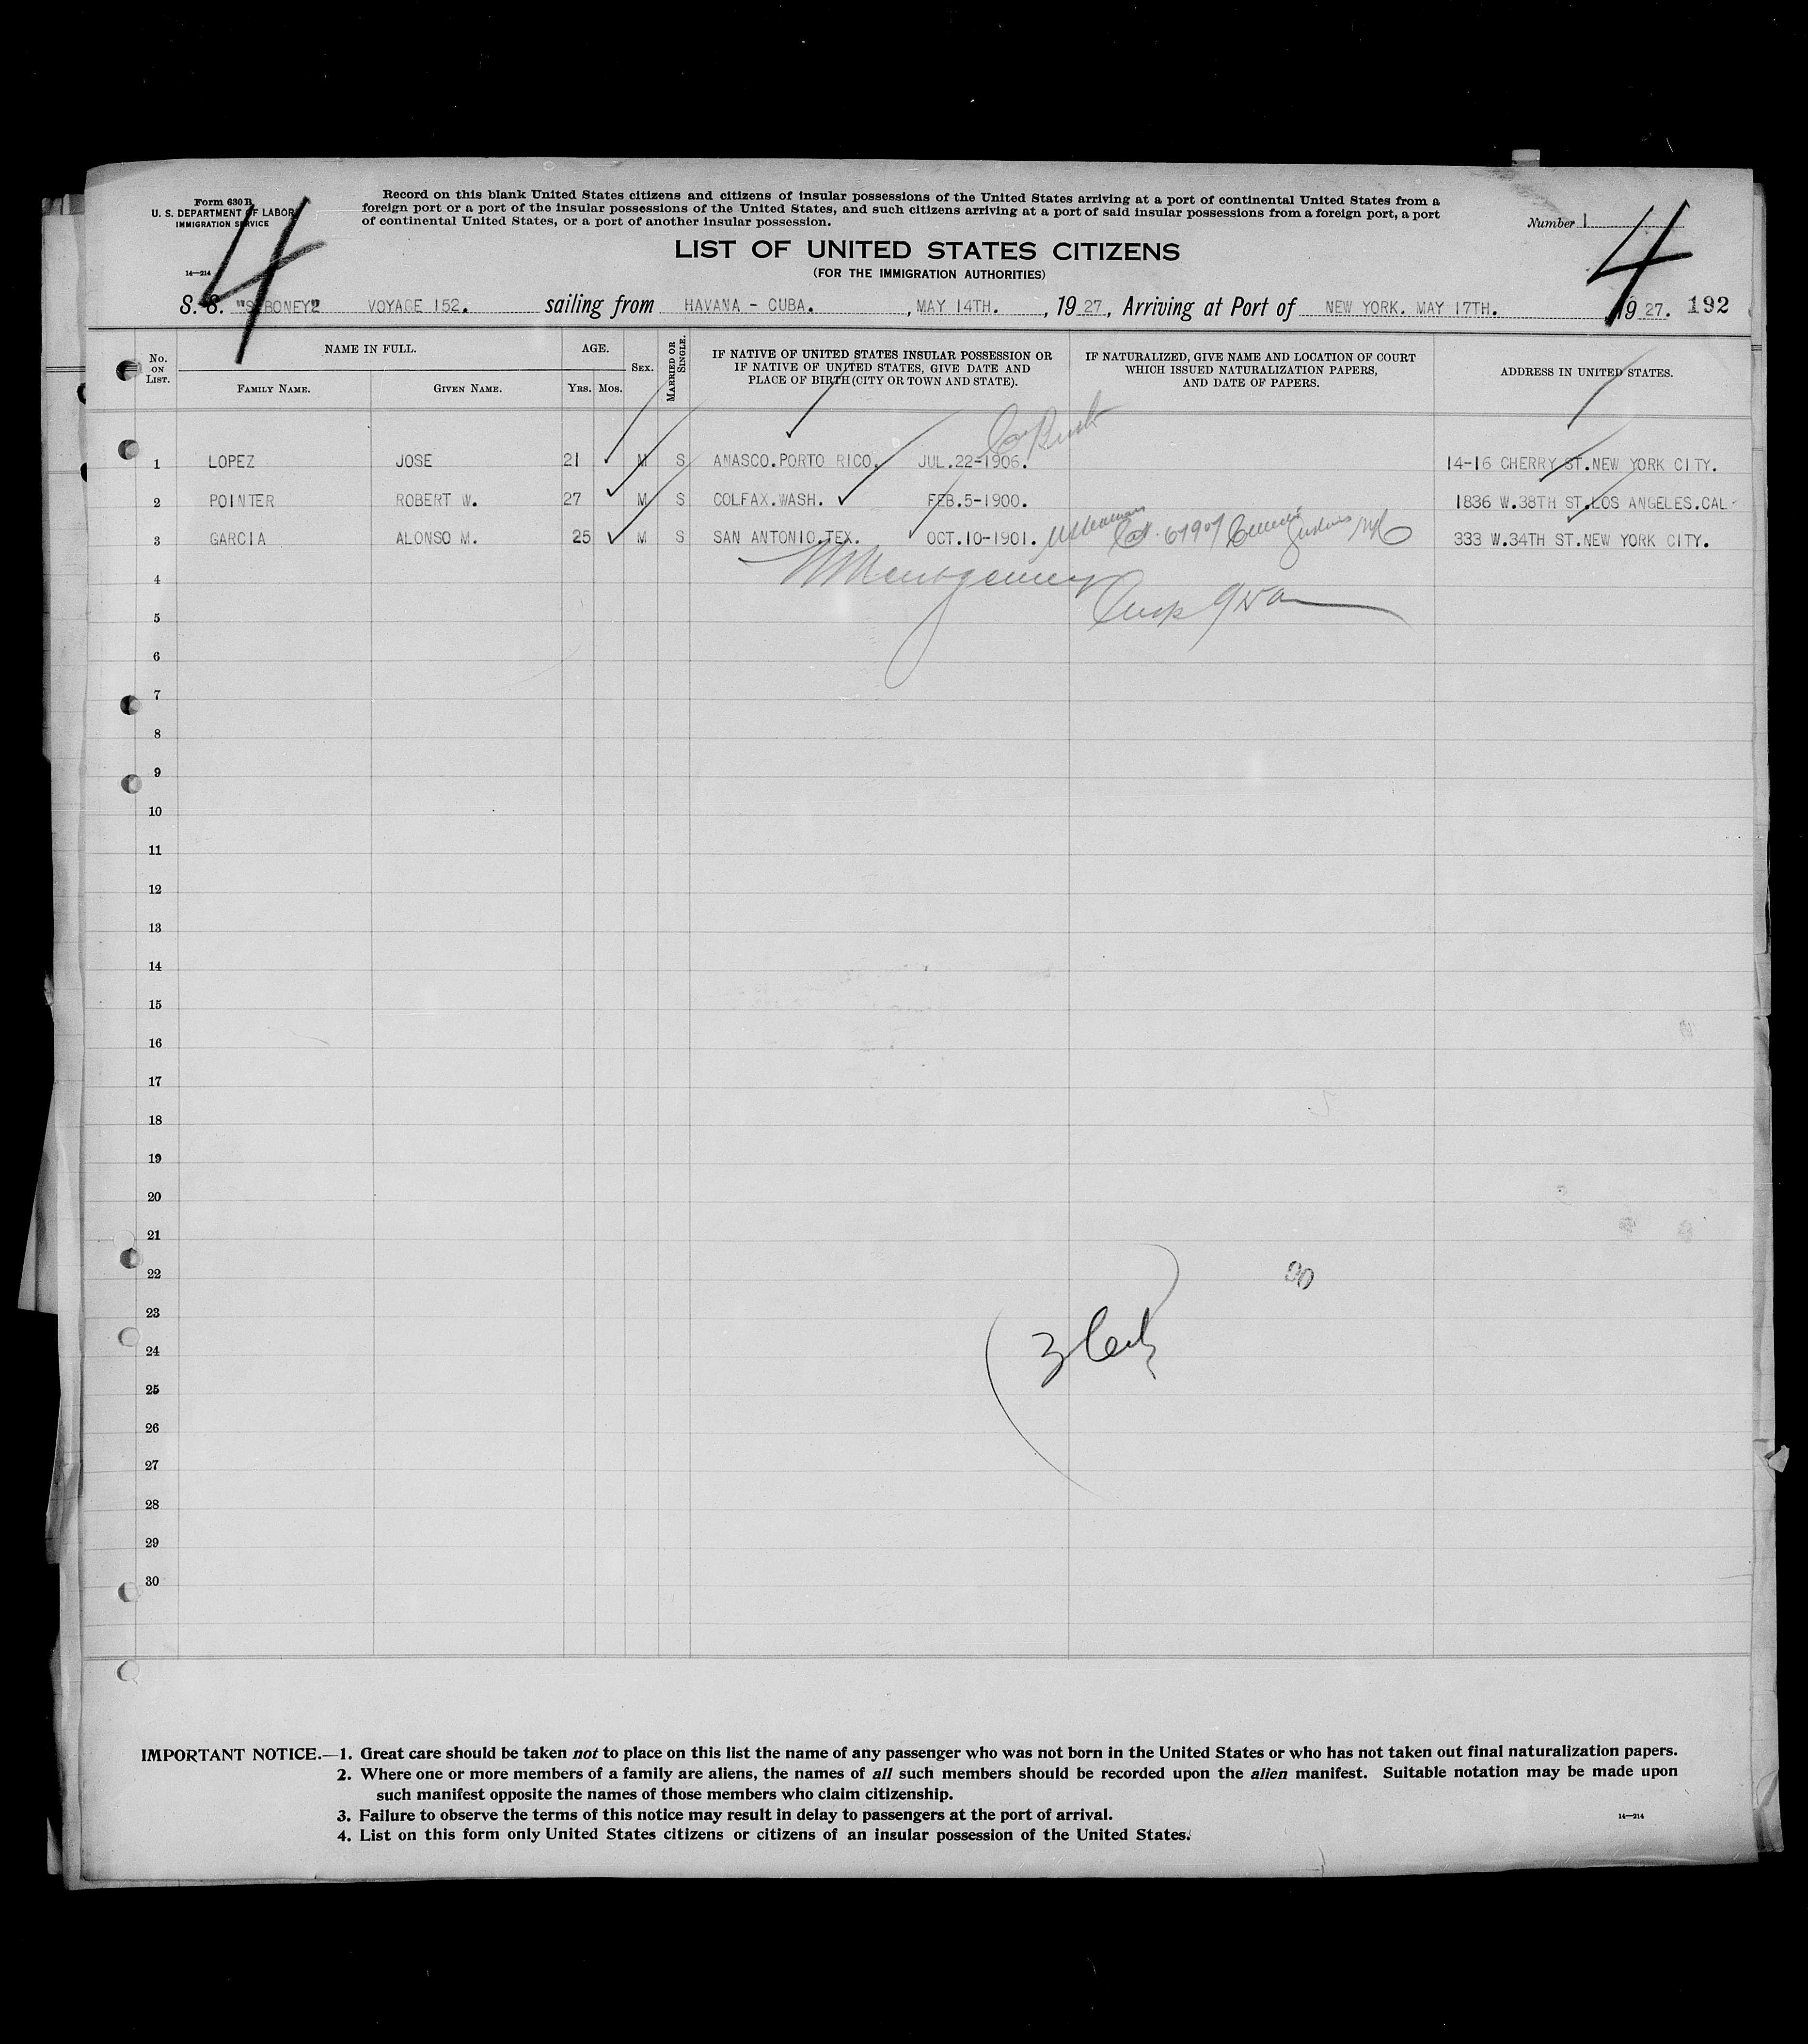 Form 630 B
U. S. DEPARTMENT OF LABOR
IMMIGRATION SERVICE
14—214
4
Record on this blank United States citizens and citizens of insular possessions of the United States arriving at a port of continental United States from a
foreign port or a port of the insular possessions of the United States, and such citizens arriving at a port of said insular possessions from a foreign port, a port
of continental United States, or a port of another insular possession.
Number 1
4
LIST OF UNITED STATES CITIZENS
(FOR THE IMMIGRATION AUTHORITIES)
S. S. "SIBONEY" VOYAGE 152. sailing from HAVANA - CUBA. , MAY 14TH. , 1927, Arriving at Port of NEW YORK. MAY 17TH. 1927. 192
No. ON LIST. NAME IN FULL. AGE. SEX. MARRIED OR SINGLE. IF NATIVE OF UNITED STATES INSULAR POSSESSION OR IF NATIVE OF UNITED STATES, GIVE DATE AND PLACE OF BIRTH (CITY OR TOWN AND STATE). IF NATURALIZED, GIVE NAME AND LOCATION OF COURT WHICH ISSUED NATURALIZATION PAPERS, AND DATE OF PAPERS. ADDRESS IN UNITED STATES.
FAMILY NAME. GIVEN NAME. YRS. MOS.
1 LOPEZ JOSE 21 M S ANASCO.PORTO RICO. JUL.22-1906. 14-16 CHERRY ST.NEW YORK CITY.
2 POINTER ROBERT W. 27 M S COLFAX.WASH. FEB.5-1900. 1836 W.38TH ST.LOS ANGELES.CAL-
3 GARCIA ALONSO M. 25 M S SAN ANTONIO.TEX. OCT.10-1901. 333 W.34TH ST.NEW YORK CITY.
4 Montgomery
5
6
7
8
9
10
11
12
13
14
15
16
17
18
19
20
21
22 90
23
24 3
25
26
27
28
29
30
IMPORTANT NOTICE.—1. Great care should be taken not to place on this list the name of any passenger who was not born in the United States or who has not taken out final naturalization papers.
2. Where one or more members of a family are aliens, the names of all such members should be recorded upon the alien manifest. Suitable notation may be made upon
such manifest opposite the names of those members who claim citizenship.
3. Failure to observe the terms of this notice may result in delay to passengers at the port of arrival.
14—214
4. List on this form only United States citizens or citizens of an insular possession of the United States.